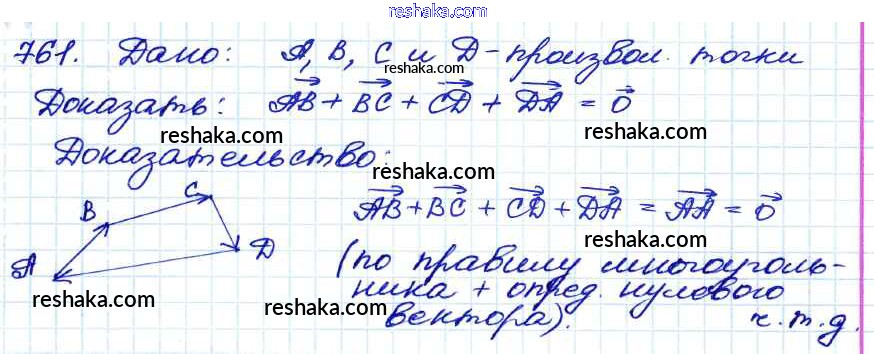 reshaka.com
761. Дано: A, B, C и D - произвол. точки
reshaka.com
Доказать: AB + BC + CD + DA = 0
reshaka.com
reshaka.com
Доказательство:
reshaka.com
reshaka.com
C
B
AB + BC + CD + DA = AA = 0
reshaka.com
A
D
(по правилу многоуголь-
reshaka.com
ника + опред. нулового
reshaka.com
reshaka.com
вектора). ч.т.д.